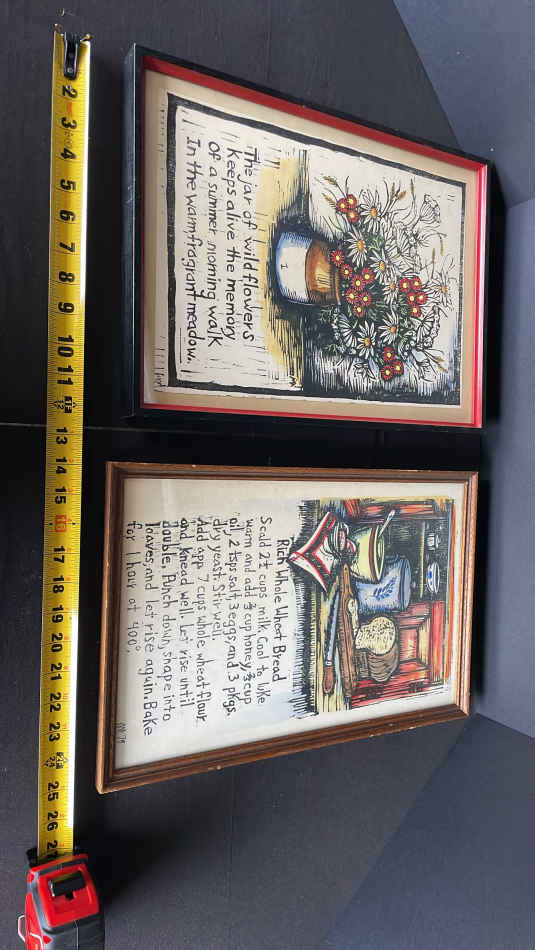 The jar of wildflowers
Keeps alive the memory
Of a summer morning walk
In the warm, fragrant meadow.
Rich Whole Wheat Bread
Scald 2 cups milk. Cool to luke
warm and add ¾ cup honey, ¾ cup
oil, 2 tsps salt, 3 eggs, and 3 pkgs.
dry yeast. Stir well.
Add app. 7 cups whole wheat flour
and knead well. Let rise until
double. Punch down, shape into
loaves, and let rise again. Bake
for 1 hour at 400°.
2 3 4 5 6 7 8 9 10 11 12 13 14 15 16 17 18 19 20 21 22 23 24 25 26 27